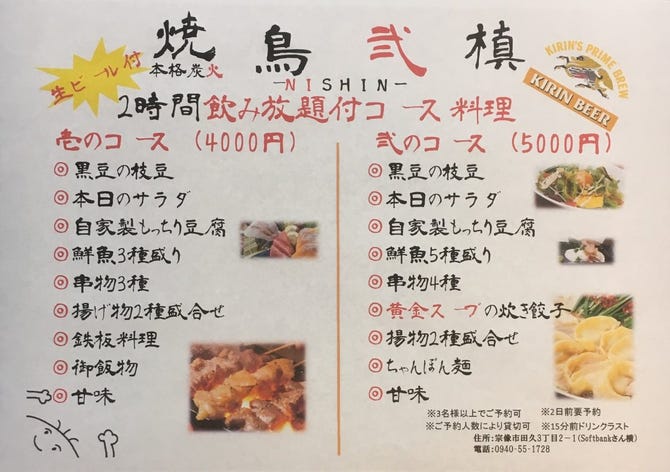 生ビール付
焼鳥 弐槙
本格炭火
-NISHIN-
KIRIN'S PRIME BREW
KIRIN BEER
2時間飲み放題付コース料理
壱のコース (4000円)
◎黒豆の枝豆
◎本日のサラダ
◎自家製もっちり豆腐
◎鮮魚3種盛り
◎串物3種
◎揚げ物2種盛合せ
◎鉄板料理
◎御飯物
◎甘味
弐のコース (5000円)
◎黒豆の枝豆
◎本日のサラダ
◎自家製もっちり豆腐
◎鮮魚5種盛り
◎串物4種
◎黄金スープの炊き餃子
◎揚物2種盛合せ
◎ちゃんぽん麺
◎甘味
※3名様以上でご予約可 ※2日前要予約
※ご予約人数により貸切可 ※15分前ドリンクラスト
住所:宗像市田久3丁目2-1(Softbankさん横)
電話:0940-55-1728